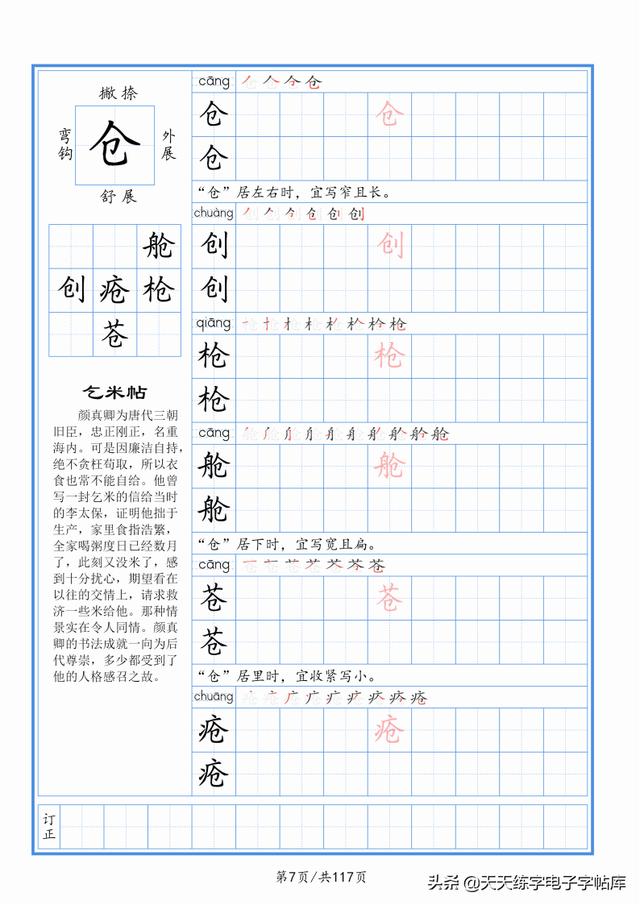 撇捺
弯钩
仓
外展
舒展
舱
创 疮 枪
苍
乞米帖
颜真卿为唐代三朝
旧臣，忠正刚正，名重
海内。可是因廉洁自持，
绝不贪枉苟取，所以衣
食也常不能自给。他曾
写一封乞米的信给当时
的李太保，证明他拙于
生产，家里食指浩繁，
全家喝粥度日已经数月
了，此刻又没米了，感
到十分扰心，期望看在
以往的交情上，请求救
济一些米给他。那种情
景实在令人同情。颜真
卿的书法成就一向为后
代尊崇，多少都受到了
他的人格感召之故。
cāng
仓 仓
仓
“仓”居左右时，宜写窄且长。
chuàng
创 创
创
qiāng
枪 枪
枪
cāng
舱 舱
舱
“仓”居下时，宜写宽且扁。
cāng
苍 苍
苍
“仓”居里时，宜收紧写小。
chuāng
疮 疮
疮
订正
第7页/共117页
头条 @天天练字电子字帖库